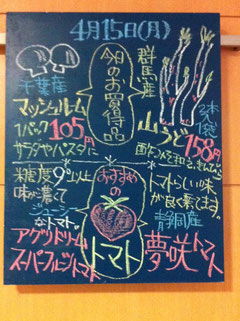 4月15日(月)
今日のお買得品
群馬産
山うど
1袋
158円
千葉産
マッシュルーム
1パック105円
サラダやパスタに
おすすめの
トマト
糖度9°以上
味が濃くて
ジューシー
なトマト
アグリドリーム
スーパーフルーツトマト
トマトらしい味
が良く素てます。
静岡産
夢咲トマト